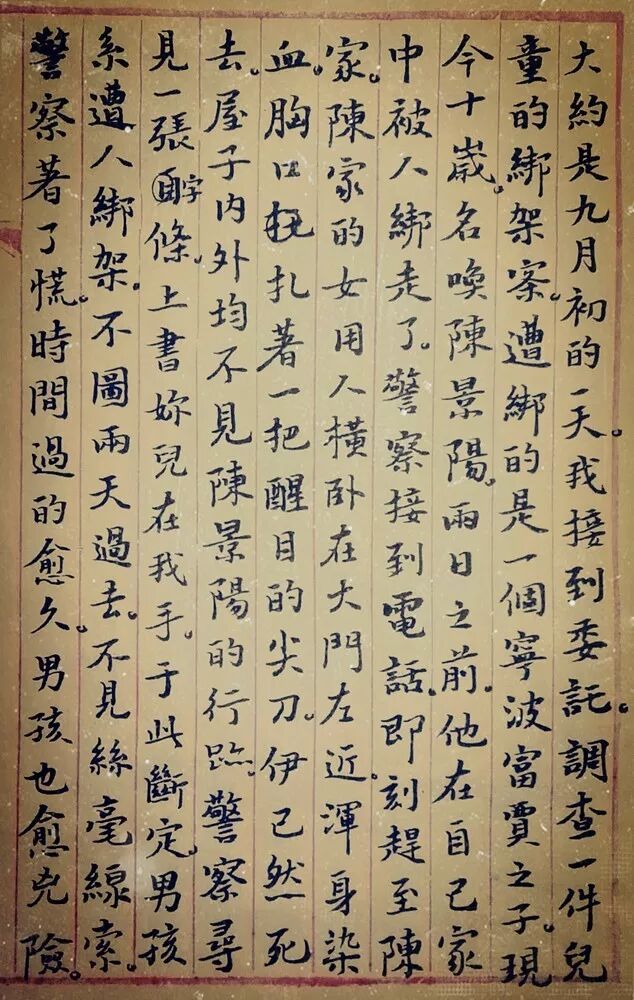 大約是九月初的一天。我接到委託。調查一件兒
童的綁架案。遭綁的是一個寧波富賈之子。現
今十歲。名喚陳景陽。兩日之前。他在自己家
中被人綁走了。警察接到電話。即刻趕至陳
家。陳家的女用人橫卧在大門左近。渾身染
血。胸口扎著一把醒目的尖刀。伊已然死
去。屋子内外均不見陳景陽的行跡。警察尋
見一張字條。上書妳兒在我手。于此斷定。男孩
系遭人綁架。不圖兩天過去。不見絲毫線索。
警察著了慌。時間過的愈久。男孩也愈兇險。